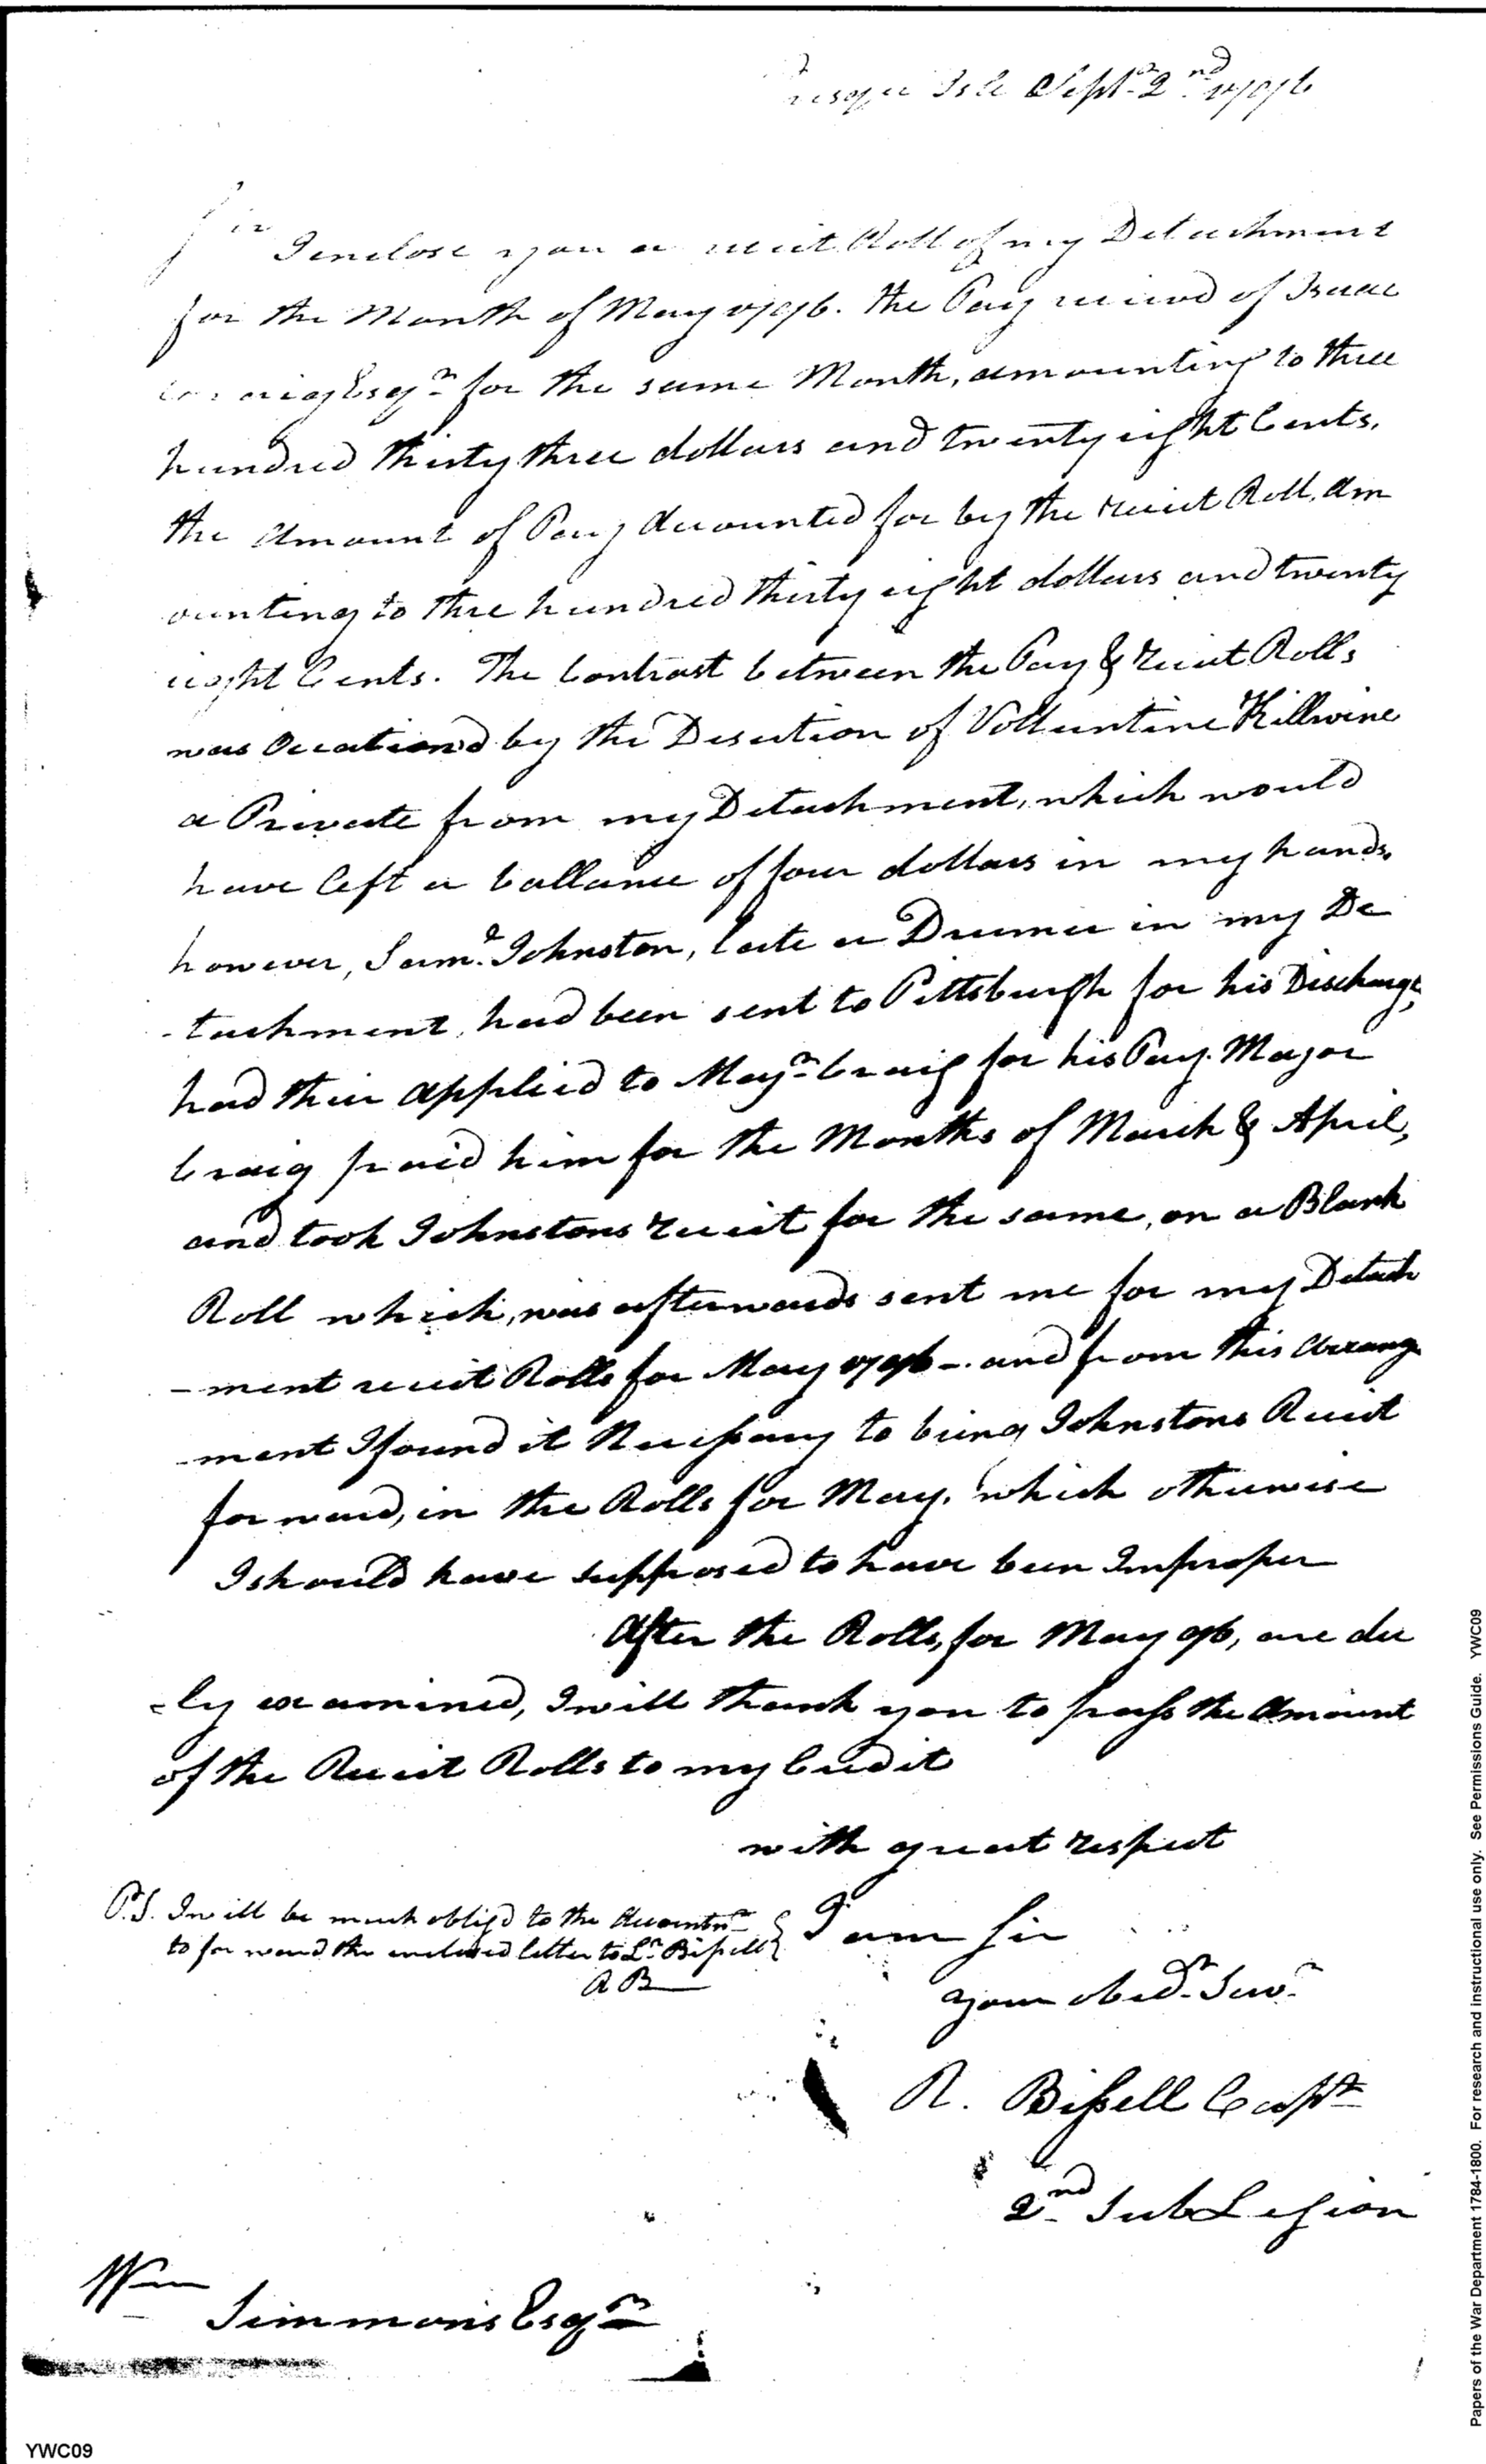 Presque Isle Sept.r 2.nd 1796
Sir
I enclose you a reciet Roll of my Detachment
for the Month of May 1796. the Pay recieved of Isaac
Craig Esq.r for the same Month, amounting to three
hundred thirty three dollars and twenty eight Cents.
the amount of Pay Accounted for by the reciet Roll, am
ounting to thre hundred thirty eight dollars and twenty
eight Cents. The Contrast between the Pay & reciet Rolls
was Occationed by the Desertion of Volluntine Killwine
a Private from my Detachment, which would
have left a ballance of four dollars in my hands.
however, Sam.l Johnston, late a Drumer in my De
-tachment, had been sent to Pittsburgh for his Discharge,
had their applied to Maj.r Craig for his Pay. Major
Craig paid him for the Months of March & April,
and took Johnstons reciet for the same, on a Blank
Roll which, was afterwards sent me for my Detach
-ment reciet Rolls for May 1796 -. and from this Arrang
-ment I found it Necessary to bring Johnstons Reciet
forward, in the Rolls for May. which otherwise
I should have supposed to have been Improper
After the Rolls, for May 96, are du
-ly examined, I will thank you to pass the Amount
of the Reciet Rolls to my Credit
with great respect
P.S. I will be much oblig'd to the Accountn.t
to forward the enclosed letter to L.t Bissell
R B
I am Sir
your obed.t Serv.t
R. Bissell Capt
2.nd Sub Legion
Wm
Simmons Esq.r
Papers of the War Department 1784-1800. For research and instructional use only. See Permissions Guide. YWC09
YWC09